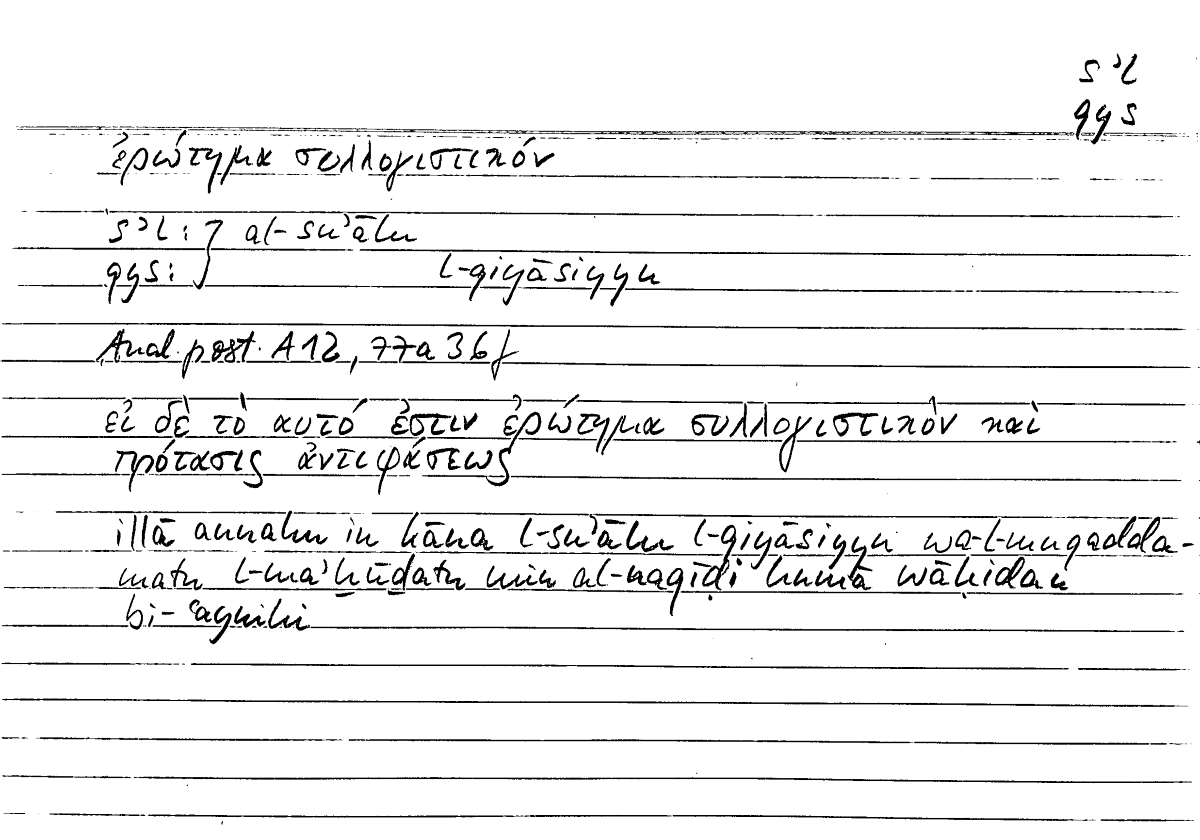 sʾl
qys
ἐρώτημα συλλογιστικόν
sʾl : } al-suʾālu
qys : l-qiyāsiyyu
Anal. post. A 12, 77a 36f
εἰ δὲ τὸ αυτό ἐστιν ἐρώτημα συλλογιστικὸν καὶ
πρότασις ἀντιφάσεως
illā annahu in kāna l-suʾālu l-qiyāsiyyu wa-l-muqadda-
matu l-maʾḫūḏatu min al-naqīḍi humā wāḥidan
bi-ʿaynihi